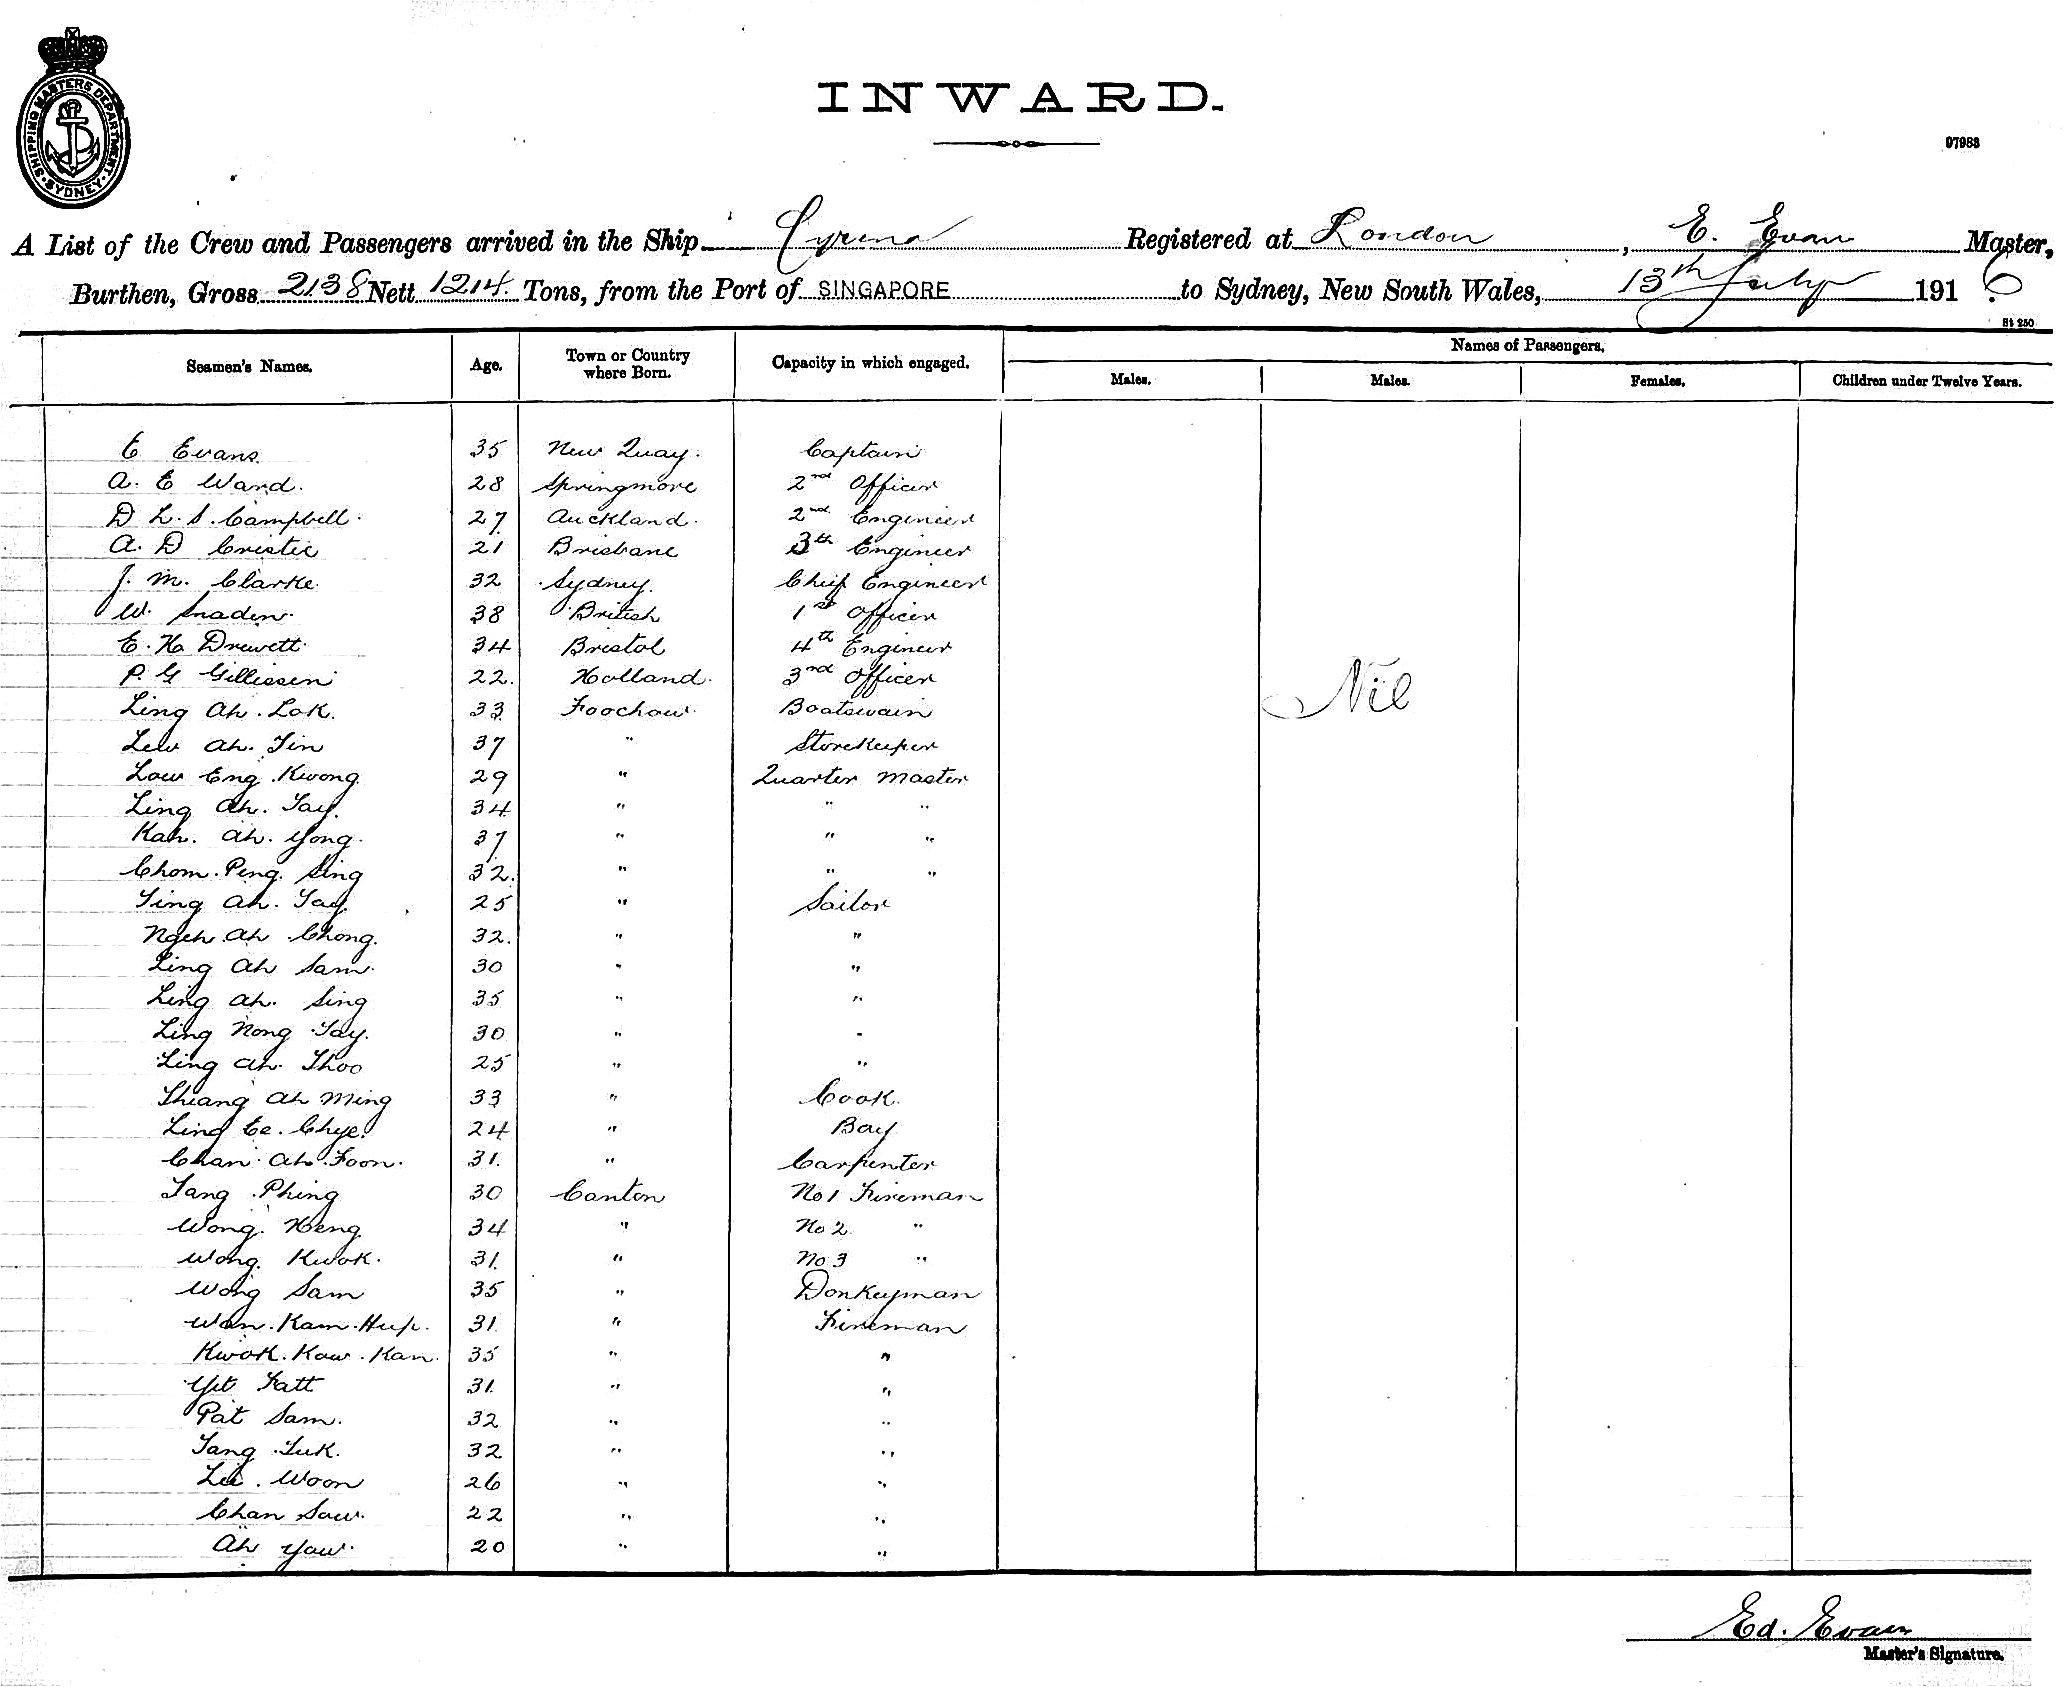 SHIPPING MASTERS DEPARTMENT
SYDNEY
INWARD.
97983
A List of the Crew and Passengers arrived in the Ship Cyrena Registered at London, E. Evan Master,
Burthen, Gross 2138 Nett 1214 Tons, from the Port of SINGAPORE to Sydney, New South Wales, 13th July 1916
St 250
Seamen's Names. Age. Town or Country where Born. Capacity in which engaged. Names of Passengers.
Males. Males. Females. Children under Twelve Years.
E Evans. 35 New Quay. Captain
A. E Ward. 28 Springmore 2nd Officer
D L. S. Campbell. 27 Auckland. 2nd Engineer
A. D Cristie 21 Brisbane 3th Engineer
J. M. Clarke. 32 Sydney. Chief Engineer
W. Snaden. 38 British 1st Officer
E. H Drewett. 34 Bristol 4th Engineer
P. G Gillissen 22. Holland. 3rd Officer
Nil
Ling Ah. Lok. 33 Foochow. Boatswain
Lew Ah. Tin 37 " Storekeeper
Low Eng Kwong. 29 " Quarter Master
Ling Ah. Tay. 34 " " "
Kah. Ah. Yong. 37 " " "
Chom. Peng. Sing 32. " " "
Ting Ah. Tay. 25 " Sailor
Ngeh Ah Chong. 32. " "
Ling Ah Sam. 30 " "
Ling Ah. Sing 35 " "
Ling Nong Tay. 30 " "
Ling Ah. Thoo 25 " "
Thiang Ah Ming 33 " Cook.
Ling Ee. Chye. 24 " Boy
Chan Ah. Foon. 31. " Carpenter
Tang Phing 30 Canton No 1 Fireman
Wong. Heng. 34 " No 2 "
Wong. Kwok. 31. " No 3 "
Wong Sam 35 " Donkeyman
Wan. Kam. Hup. 31. " Fireman
Kwok. Kow. Kan. 35 " "
Yit Fatt 31. " "
Pat Sam. 32 " "
Tang Tuk. 32 " "
Lee. Woon 26 " "
Chan Saw. 22 " "
Ah Yaw. 20 " "
Ed. Evan
Master's Signature.